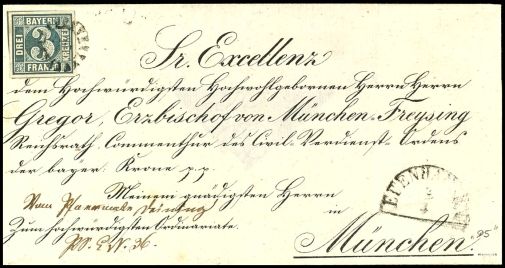 BAYERN
DREI
3
KREUZER
FRANCO
Sr. Excellenz
dem Hochwürdigsten Hochwohlgebornen Herrn Herrn
Gregor, Erzbischof von München-Freysing
Reichsrath, Commenthur des Civil-Verdienst-Ordens
der bayer: Krone p.p.
Meinem gnädigsten Herrn
Vom Pfarramte
Zum hochwürdigsten Ordinariate.
in
München
"95"